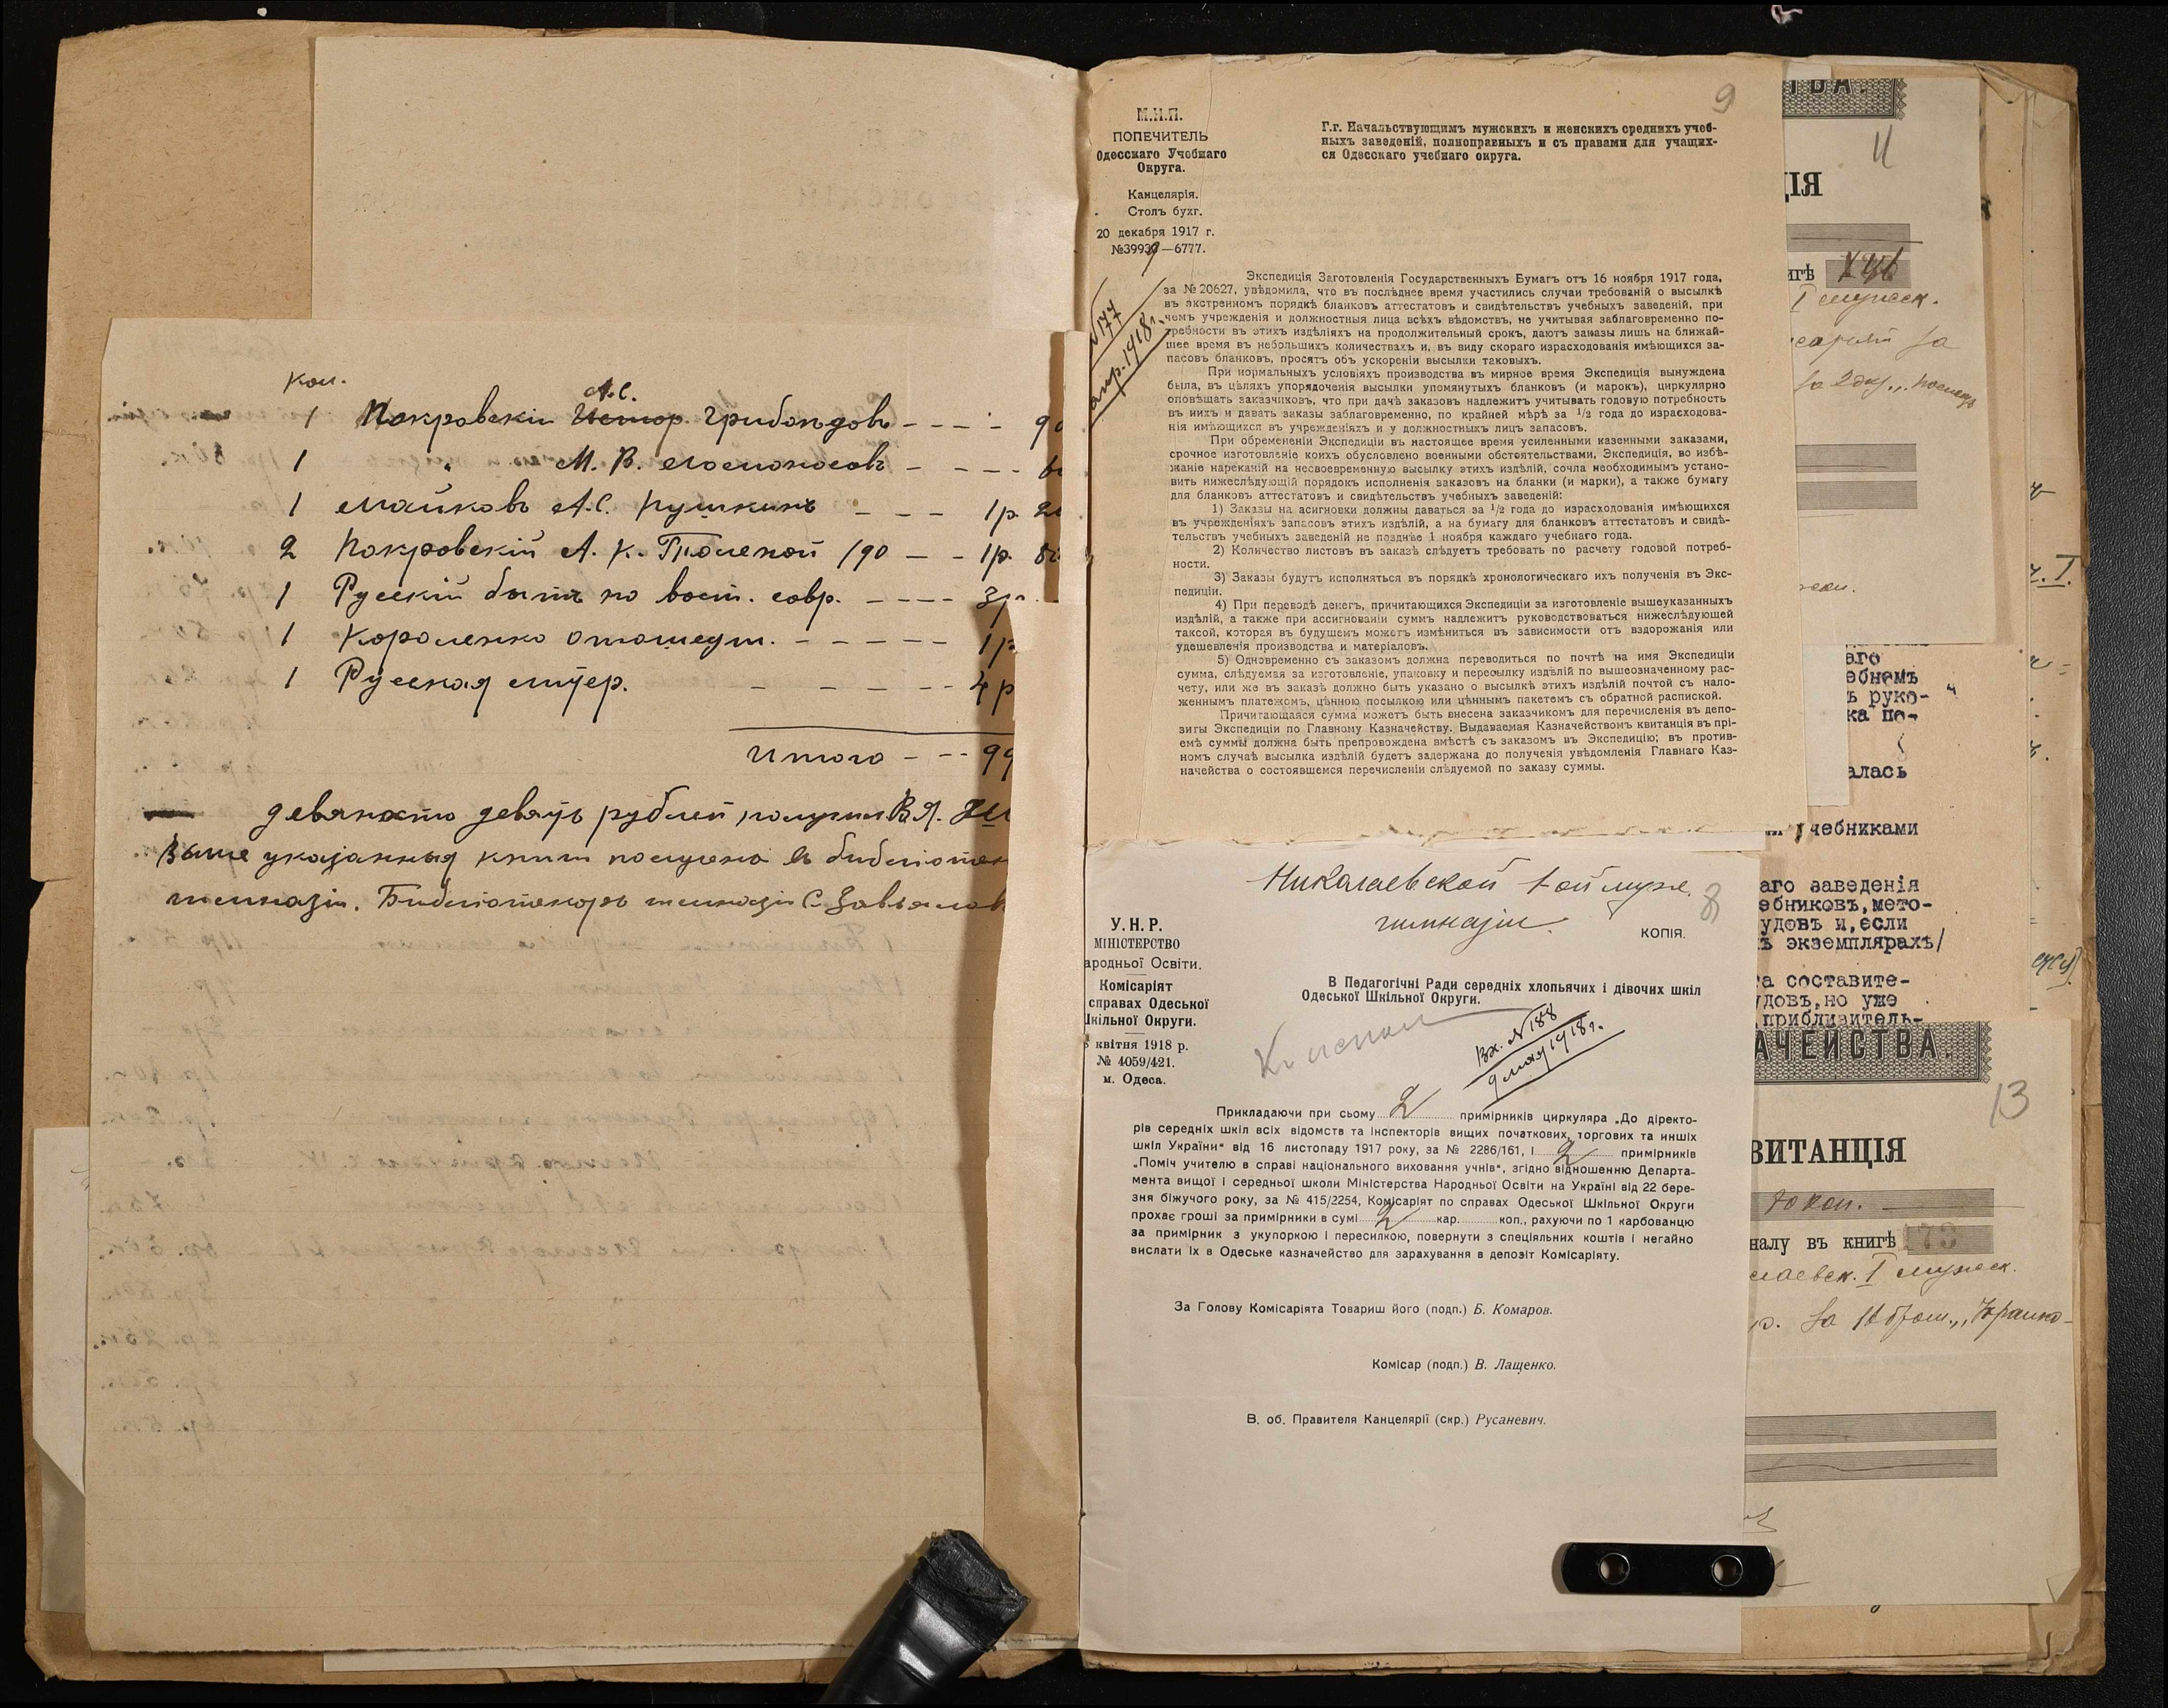 Кол.
1 Покровскій А.С. Грибоѣдовъ - - - - 90
1 " М. В. Ломоносовъ - - - - 6
1 Майковъ А.С. Пушкинъ - - - 1р. 20
2 Покровскій А. К. Толстой /90 - - 1р. 80
1 Русскій бытъ по восп. совр. - - - - 3р.
1 Короленко Отошедш. - - - - - 1р
1 Русская - - - - - 4р
Итого - - - 99
девяносто девять рублей получилъ В.Я.
Выше указанныя книги получено въ библіотек
гимназіи. Библіотекарь гимназіи С. Завьялов
9
М.Н.П.
ПОПЕЧИТЕЛЬ
Одесскаго Учебнаго
Округа.
Канцелярія.
Столъ бухг.
20 декабря 1917 г.
№39939—6777.
Г.г. Начальствующимъ мужскихъ и женскихъ среднихъ учеб-
ныхъ заведеній, полноправныхъ и съ правами для учащих-
ся Одесскаго учебнаго округа.
N 177
апр. 1918 г.
Экспедиція Заготовленія Государственныхъ Бумагъ отъ 16 ноября 1917 года,
за № 20627, увѣдомила, что въ послѣднее время участились случаи требованій о высылкѣ
въ экстренномъ порядкѣ бланковъ аттестатовъ и свидѣтельствъ учебныхъ заведеній, при
чемъ учрежденія и должностныя лица всѣхъ вѣдомствъ, не учитывая заблаговременно по-
требности въ этихъ издѣліяхъ на продолжительный срокъ, даютъ заказы лишь на ближай-
шее время въ небольшихъ количествахъ и, въ виду скораго израсходованія имѣющихся за-
пасовъ бланковъ, просятъ объ ускореніи высылки таковыхъ.
При нормальныхъ условіяхъ производства въ мирное время Экспедиція вынуждена
была, въ цѣляхъ упорядоченія высылки упомянутыхъ бланковъ (и марокъ), циркулярно
оповѣщать заказчиковъ, что при дачѣ заказовъ надлежитъ учитывать годовую потребность
въ нихъ и давать заказы заблаговременно, по крайней мѣрѣ за 1/2 года до израсходова-
нія имѣющихся въ учрежденіяхъ и у должностныхъ лицъ запасовъ.
При обремененіи Экспедиціи въ настоящее время усиленными казенными заказами,
срочное изготовленіе коихъ обусловлено военными обстоятельствами, Экспедиція, во избѣ-
жаніе нареканій на несвоевременную высылку этихъ издѣлій, сочла необходимымъ устано-
вить нижеслѣдующій порядокъ исполненія заказовъ на бланки (и марки), а также бумагу
для бланковъ аттестатовъ и свидѣтельствъ учебныхъ заведеній:
1) Заказы на асигновки должны даваться за 1/2 года до израсходованія имѣющихся
въ учрежденіяхъ запасовъ этихъ издѣлій, а на бумагу для бланковъ аттестатовъ и свидѣ-
тельствъ учебныхъ заведеній не позднѣе 1 ноября каждаго учебнаго года.
2) Количество листовъ въ заказѣ слѣдуетъ требовать по расчету годовой потреб-
ности.
3) Заказы будутъ исполняться въ порядкѣ хронологическаго ихъ полученія въ Экс-
педиціи.
4) При переводѣ денегъ, причитающихся Экспедиціи за изготовленіе вышеуказанныхъ
издѣлій, а также при ассигнованіи суммъ надлежитъ руководствоваться нижеслѣдующей
таксой, которая въ будущемъ можетъ измѣниться въ зависимости отъ вздорожанія или
удешевленія производства и матеріаловъ.
5) Одновременно съ заказомъ должна переводиться по почтѣ на имя Экспедиціи
сумма, слѣдуемая за изготовленіе, упаковку и пересылку издѣлій по вышеозначенному рас-
чету, или же въ заказѣ должно быть указано о высылкѣ этихъ издѣлій почтой съ нало-
женнымъ платежомъ, цѣнною посылкою или цѣннымъ пакетомъ съ обратной распиской.
Причитающаяся сумма можетъ быть внесена заказчикомъ для перечисленія въ депо-
зиты Экспедиціи по Главному Казначейству. Выдаваемая Казначействомъ квитанція въ прі-
емѣ суммы должна быть препровождена вмѣстѣ съ заказомъ въ Экспедицію; въ против-
номъ случаѣ высылка издѣлій будетъ задержана до полученія увѣдомленія Главнаго Каз-
начейства о состоявшемся перечисленіи слѣдуемой по заказу суммы.
Николаевской 1-ой муж.
гимназіи.
8
КОПІЯ.
У.Н.Р.
МІНІСТЕРСТВО
ародньої Освіти.
Комісаріят
справах Одеської
Шкільної Округи.
квітня 1918 р.
№ 4059/421.
м. Одеса.
В Педагогічні Ради середніх хлопьячих і дівочих шкіл
Одеської Шкільної Округи.
Вх. N 188
9 мая 1918 г.
Прикладаючи при сьому 2 примірників циркуляра „До діректо-
рів середніх шкіл всіх відомств та інспекторів вищих початкових, торгових та инших
шкіл України“ від 16 листопаду 1917 року, за № 2286/161, і 2 примірників
„Поміч учителю в справі національного виховання учнів“, згідно відношенню Департа-
мента вищої і середньої школи Міністерства Народньої Освіти на Україні від 22 бере-
зня біжучого року, за № 415/2254, Комісаріят по справах Одеської Шкільної Округи
прохає гроші за примірники в сумі 2 кар. коп., рахуючи по 1 карбованцю
за примірник з укупоркою і пересилкою, повернути з спеціяльних коштів і негайно
вислати їх в Одеське казначейство для зарахування в депозіт Комісаріяту.
За Голову Комісаріята Товариш його (подп.) Б. Комаров.
Комісар (подп.) В. Лащенко.
В. об. Правителя Канцелярії (скр.) Русаневич.
ТВА.
11
ЦІЯ
игѣ
I мужск.
за
аго
ебнемъ
ъ руко-
ка по-
алась
учебниками
аго заведенія
ебниковъ, мето-
удовъ и, если
ъ экземплярахъ/
та составите-
удовъ, но уже
приблизитель-
АЧЕЙСТВА.
13
ВИТАНЦІЯ
70 коп.
налу въ книгѣ 173
лаевск. I мужск.
р. за 12 брош.,